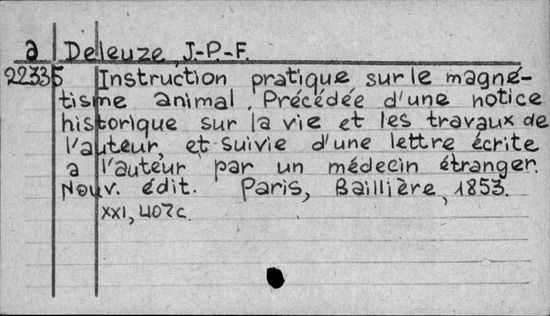 a Deleuze, J.-P.-F.
22335 Instruction pratique sur le magné-
tisme animal. Précédée d'une notice
historique sur la vie et les travaux de
l'auteur, et suivie d'une lettre écrite
a l'auteur par un médecin étranger.
Nouv. édit. Paris, Baillière, 1853.
XXI, 407c.